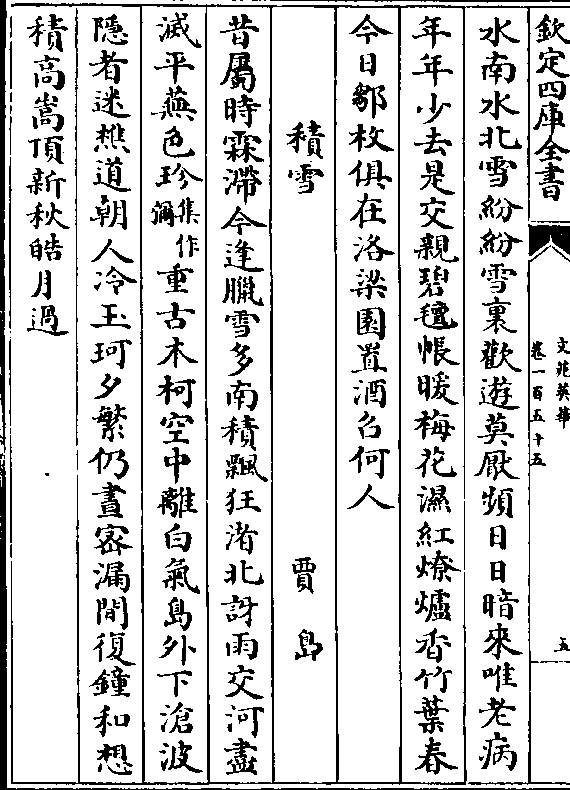 欽定四庫全書
文苑英華
卷一百五十五
五
水南水北雪紛紛雪裏歡遊莫厭頻日日暗來唯老病
年年少去是交親碧氊帳暖梅花濕紅燎爐香竹葉春
今日鄒枚俱在洛梁園置酒召何人
積雪 賈島
昔屬時霖滯今逢臘雪多南積飄狂渚北訝雨交河盡
滅平蕪色珍集作彌重古木柯空中離白氣島外下滄波
隱者迷樵道朝人冷玉珂夕繁仍晝密漏間復鐘和想
積高嵩頂新秋皓月過